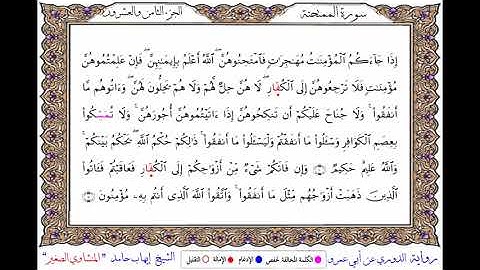 سورة الممتحنة
الجزء الثامن والعشرون
إِذَا جَآءَكُمُ ٱلْمُؤْمِنَٰتُ مُهَٰجِرَٰتٍ فَٱمْتَحِنُوهُنَّ ۖ ٱللَّهُ أَعْلَمُ بِإِيمَٰنِهِنَّ ۖ فَإِنْ عَلِمْتُمُوهُنَّ
مُؤْمِنَٰتٍ فَلَا تَرْجِعُوهُنَّ إِلَى ٱلْكُفَّارِ ۖ لَا هُنَّ حِلٌّ لَّهُمْ وَلَا هُمْ يَحِلُّونَ لَهُنَّ ۖ وَءَاتُوهُم مَّا
أَنفَقُوا۟ ۚ وَلَا جُنَاحَ عَلَيْكُمْ أَن تَنكِحُوهُنَّ إِذَآ ءَاتَيْتُمُوهُنَّ أُجُورَهُنَّ ۚ وَلَا تُمَسِّكُوا۟
بِعِصَمِ ٱلْكَوَافِرِ وَسْـَٔلُوا۟ مَآ أَنفَقْتُمْ وَلْيَسْـَٔلُوا۟ مَآ أَنفَقُوا۟ ۚ ذَٰلِكُمْ حُكْمُ ٱللَّهِ ۖ يَحْكُمُ بَيْنَكُمْ ۚ
وَٱللَّهُ عَلِيمٌ حَكِيمٌ ۝ وَإِن فَاتَكُمْ شَىْءٌ مِّنْ أَزْوَٰجِكُمْ إِلَى ٱلْكُفَّارِ فَعَاقَبْتُمْ فَـَٔاتُوا۟
ٱلَّذِينَ ذَهَبَتْ أَزْوَٰجُهُم مِّثْلَ مَآ أَنفَقُوا۟ ۚ وَٱتَّقُوا۟ ٱللَّهَ ٱلَّذِىٓ أَنتُم بِهِۦ مُؤْمِنُونَ
رواية الدوري عن أبي عمرو
الكلمة المخالفة لحفص الإدغام الإمالة التقليل
الشيخ إيهاب حامد "المنشاوي الصغير"